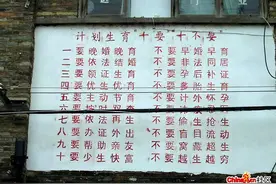 计划生育“十要”“十不要”
一要晚婚晚育 不要早婚早育
二要依法结婚 不要非法同居
三要领证生育 不要孕后补证
四要优生优育 不要多胎生育
五要主动节育 不要计外怀孕
六要按时 不要
七要依法再生 不要偷生抢生
八要办证外出 不要盲目流动
九要帮助亲友 不要窝藏超生
十要少生快富 不要越生越穷
China 社区